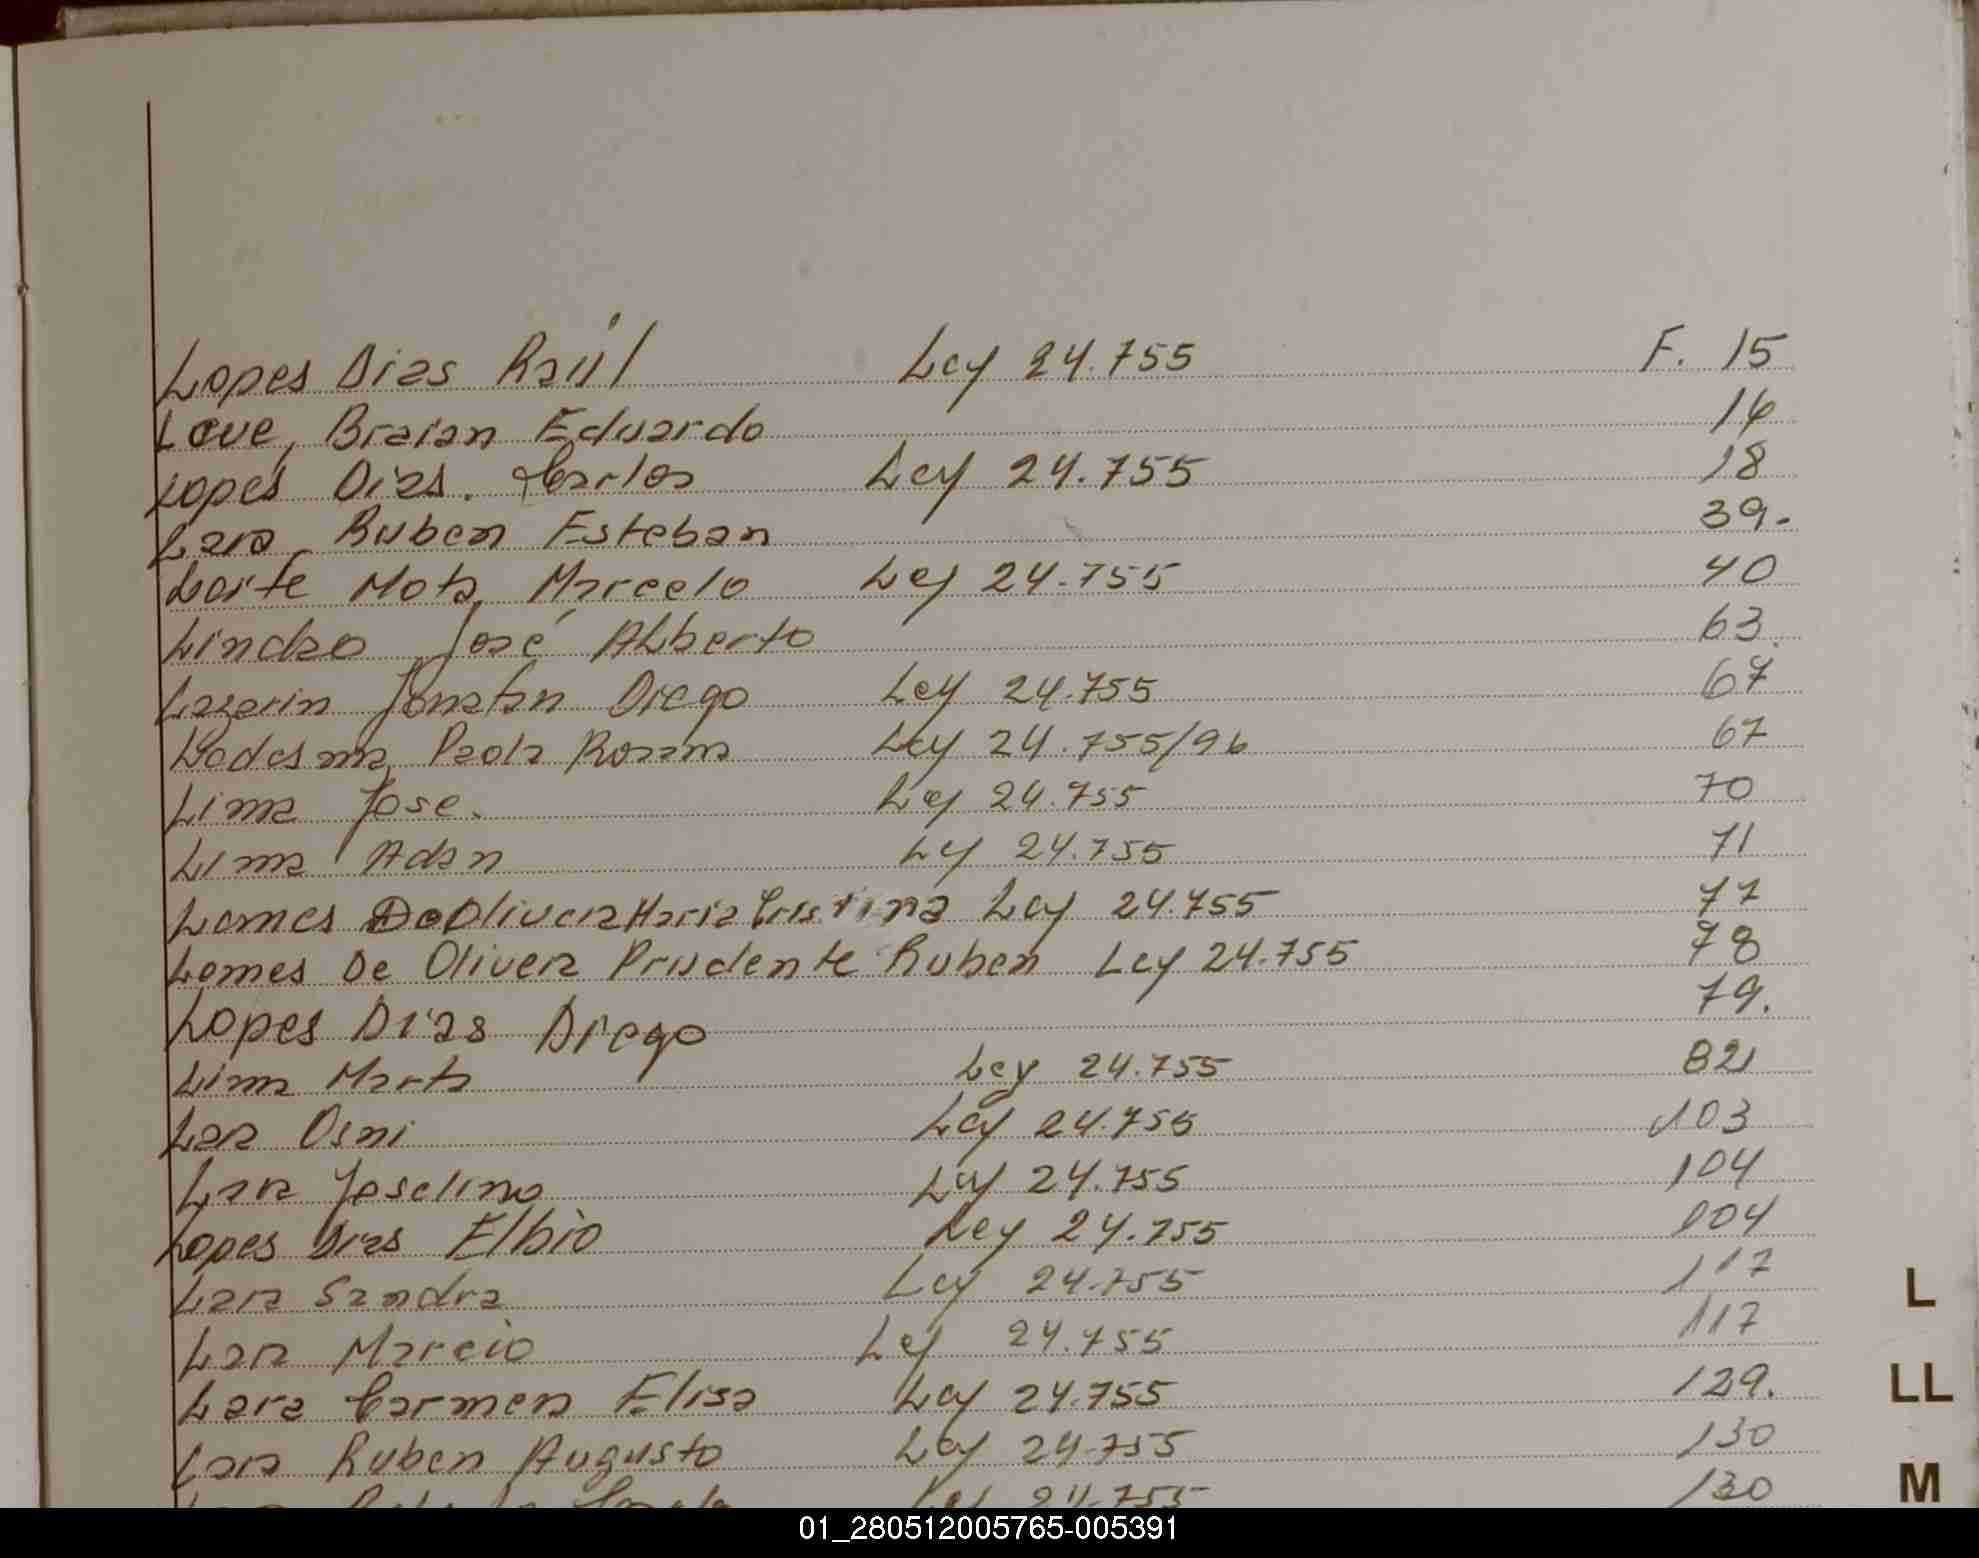 Lopes Dias Raúl Ley 24.755 F. 15
Leve, Braian Eduardo 16
Lopes Dias. Carlos Ley 24.755 18
Lara Ruben Esteban 39.
Leite Mota, Marcelo Ley 24.755 40
Lindao José ALberto 63
Lazarin Jonatan Diego Ley 24.755 67
Ledesma, Paola Rosana Ley 24.755/96 67
Lima Jose. Ley 24.755 70
Lima Adan Ley 24.755 71
Lemes De Oliveira Maria Cristina Ley 24.755 77
Lemes De Olivera Prudente Ruben Ley 24.755 78
Lopes Dias Diego 79.
Lima Marta Ley 24.755 82
Lara Osni Ley 24.755 103
Lara Joselino Ley 24.755 104
Lopes Dias Elbio Ley 24.755 104
Lara Sandra Ley 24.755 117
Lara Marcio Ley 24.755 117
Lara Carmen Elisa Ley 24.755 129.
Lara Ruben Augusto Ley 24.755 130
Lara Ley 24.755 130
L
LL
M
01_280512005765-005391